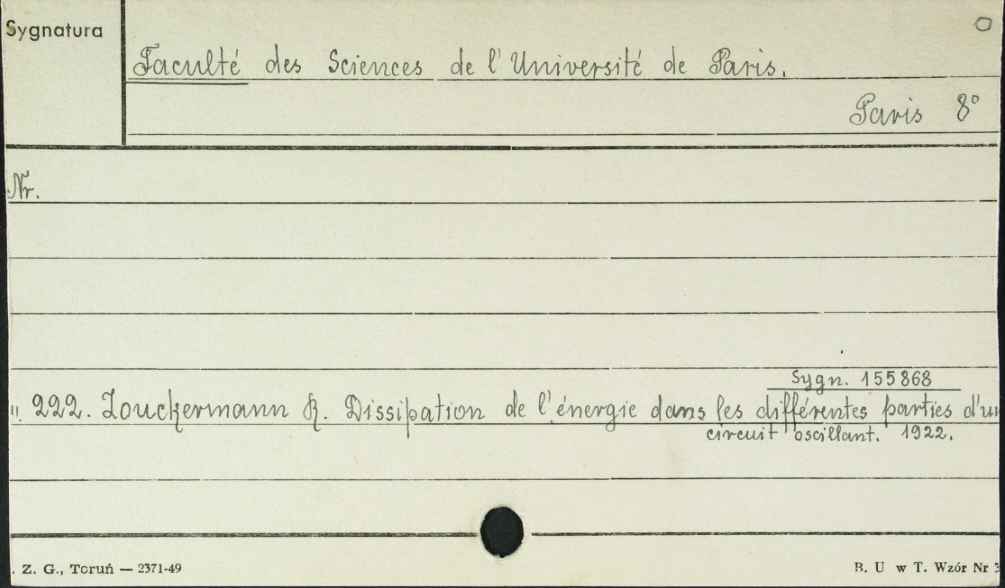 Sygnatura
Faculté des Sciences de l'Université de Paris.
Paris 8°
Nr.
Sygn. 155868
". 222. Zouckermann R. Dissipation de l'énergie dans les différentes parties d'un
circuit oscillant. 1922.
. Z. G., Toruń — 2371-49
B. U w T. Wzór Nr